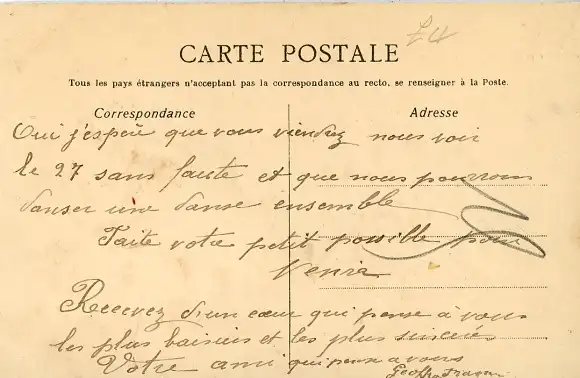 £4
CARTE POSTALE
Tous les pays étrangers n'acceptant pas la correspondance au recto, se renseigner à la Poste.
Correspondance
Adresse
Oui j'espère que vous viendrez nous voir
le 27 sans faute et que nous pourrons
danser une danse ensemble
Faite votre petit possible pour
venir
Recevez d'un cœur qui pense à vous
les plus baisers et les plus sincères
Votre ami qui pense a vous